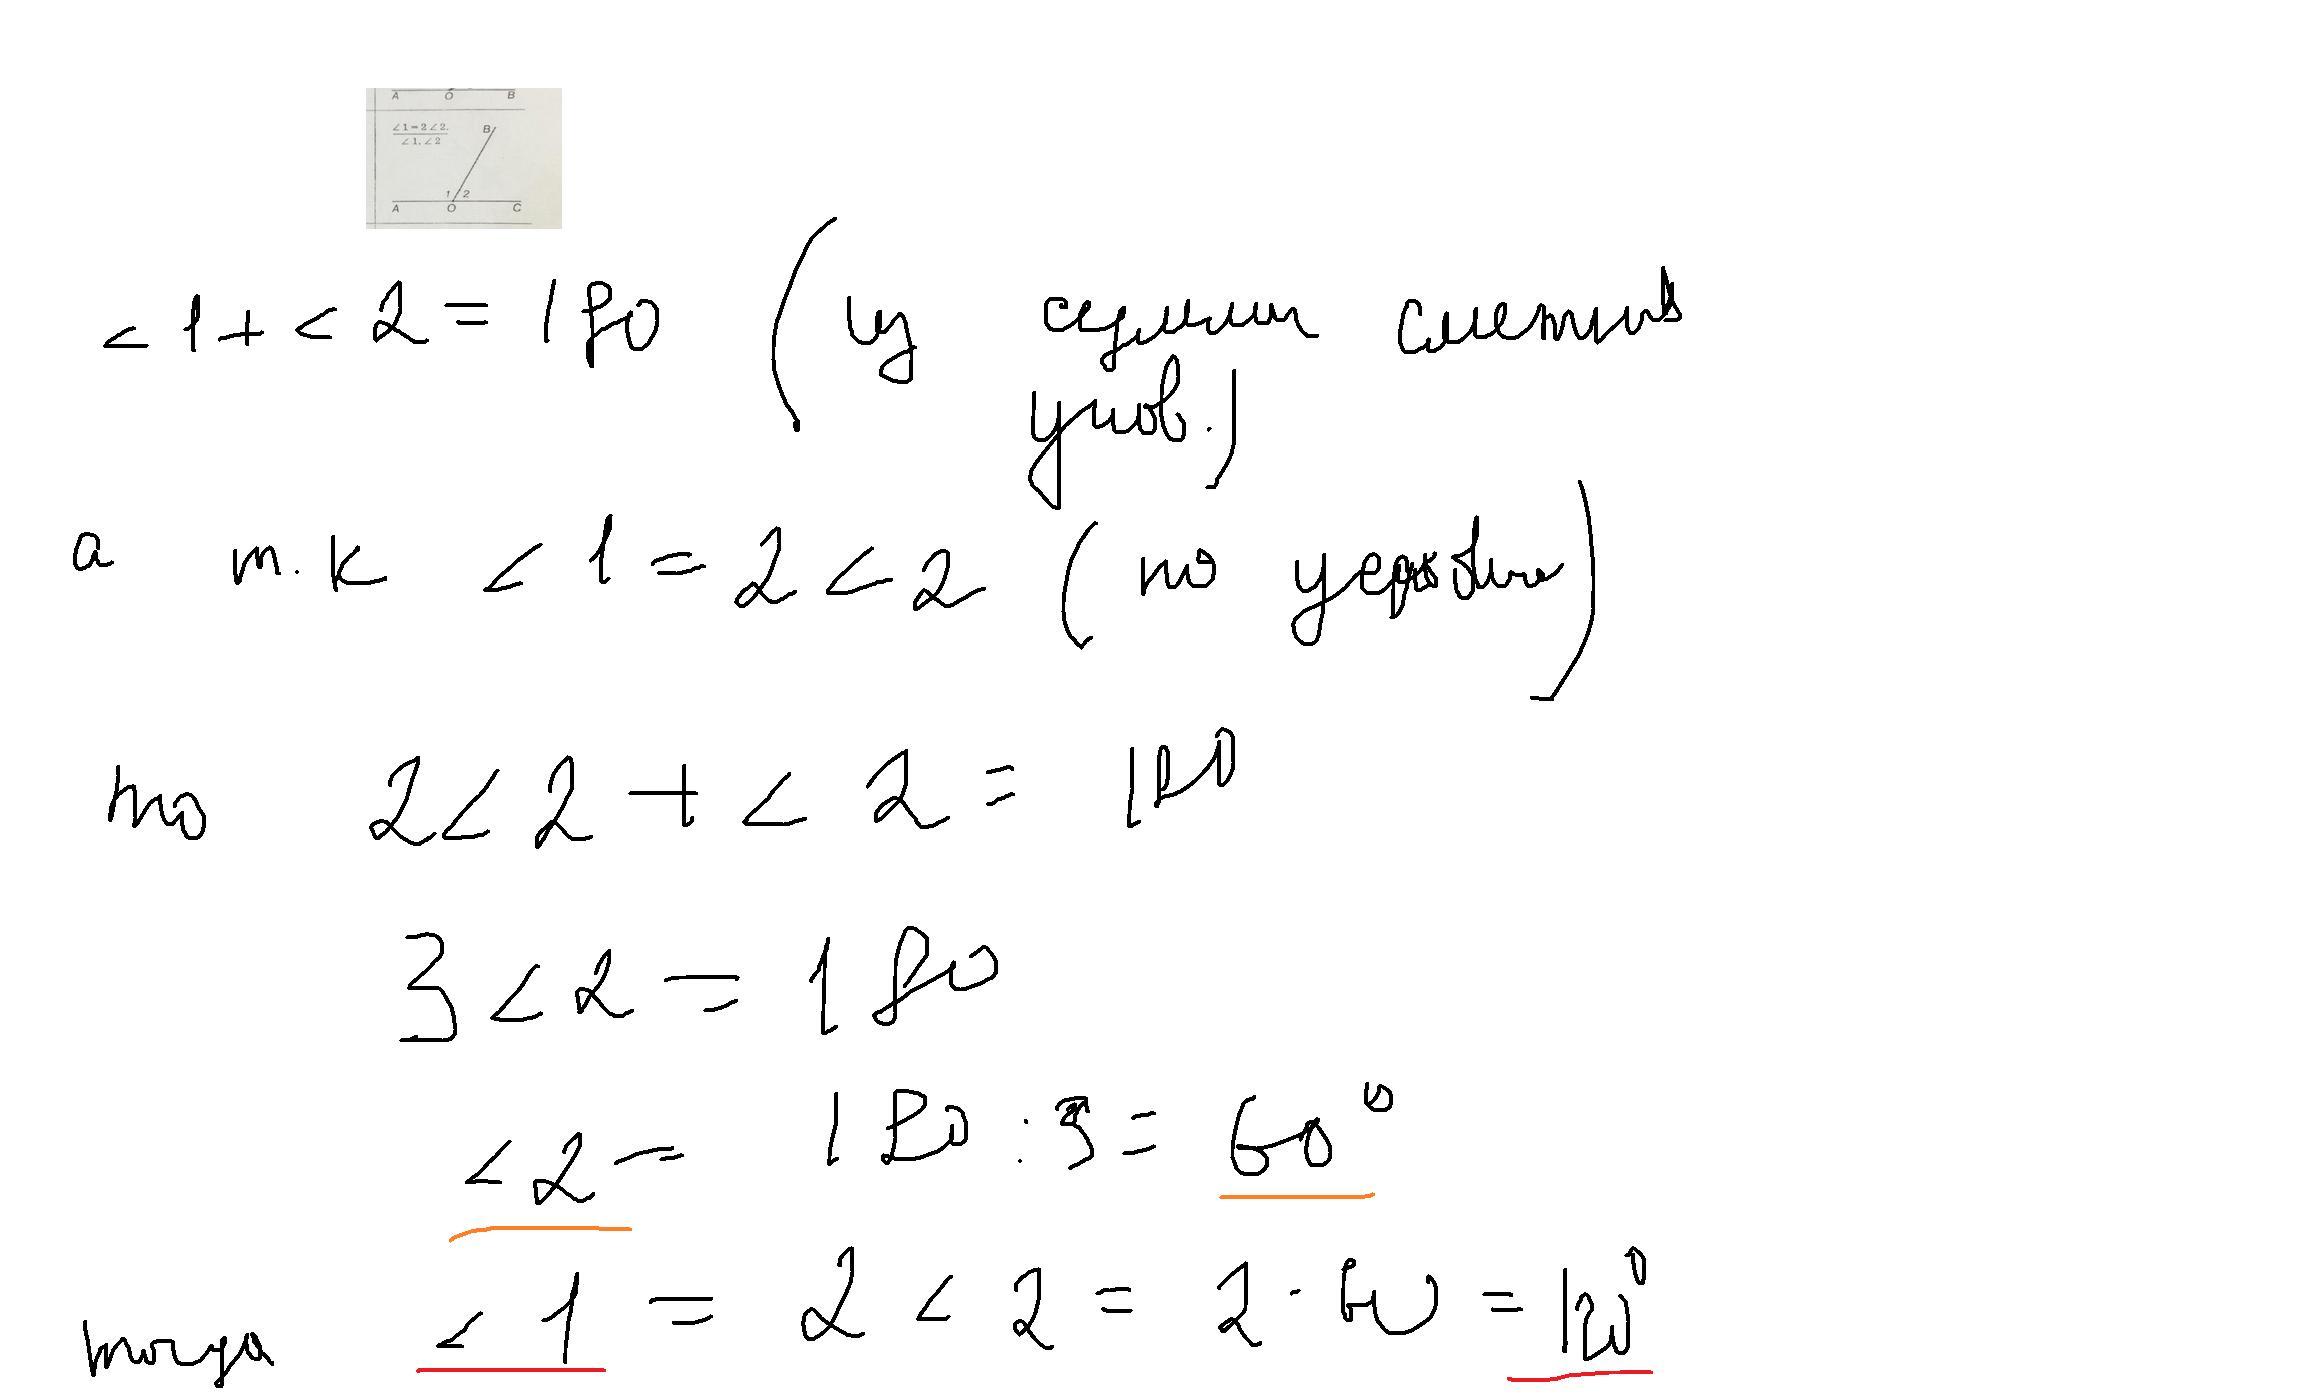 A O B
∠1=2∠2.
∠1, ∠2
B
1 2
A O C
<1+<2=180 (из суммы смежных
углов.)
а т.к <1=2<2 (по условию)
то 2<2+<2=180
3<2=180
<2= 180:3=60°
тогда <1=2<2=2·60=120°